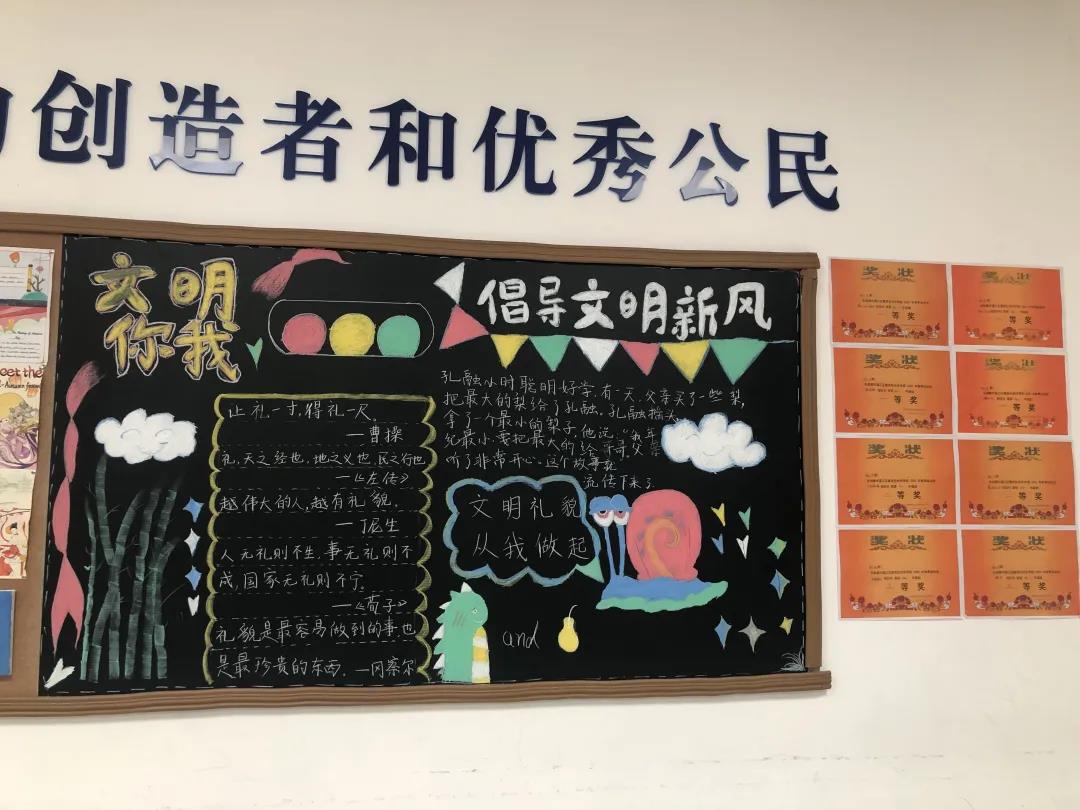 创造者和优秀公民
文明
你我
倡导文明新风
让礼一寸,得礼一尺。
—曹操
礼,天之经也,地之义也,民之行也
—《左传》
越伟大的人,越有礼貌.
—丁尼生
人无礼则不生,事无礼则不
成,国家无礼则不宁.
—《荀子》
礼貌是最容易做到的事,也
是最珍贵的东西.—冈察尔
孔融小时聪明好学,有一天,父亲买了一些梨,
把最大的梨给了孔融,孔融摇头,
拿了一个最小的梨子,他说:“我年
纪最小,要把最大的给哥哥”父亲
听了非常开心,这个故事就
流传下来了
文明礼貌
从我做起
and
奖状
一等奖
奖状
一等奖
奖状
一等奖
奖状
一等奖
奖状
一等奖
奖状
一等奖
奖状
一等奖
奖状
一等奖